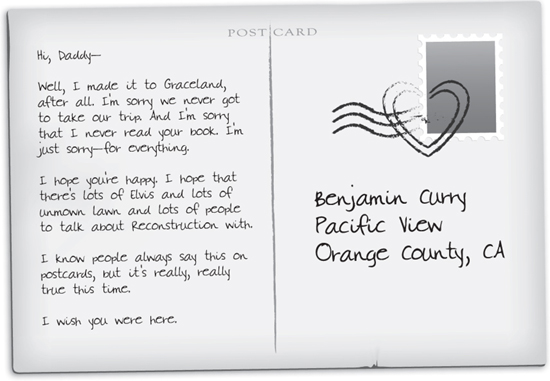 POST CARD
Hi, Daddy—
Well, I made it to Graceland,
after all. I'm sorry we never got
to take our trip. And I'm sorry
that I never read your book. I'm
just sorry—for everything.
I hope you're happy. I hope that
there's lots of Elvis and lots of
unmown lawn and lots of people
to talk about Reconstruction with.
I know people always say this on
postcards, but it's really, really
true this time.
I wish you were here.
Benjamin Curry
Pacific View
Orange County, CA